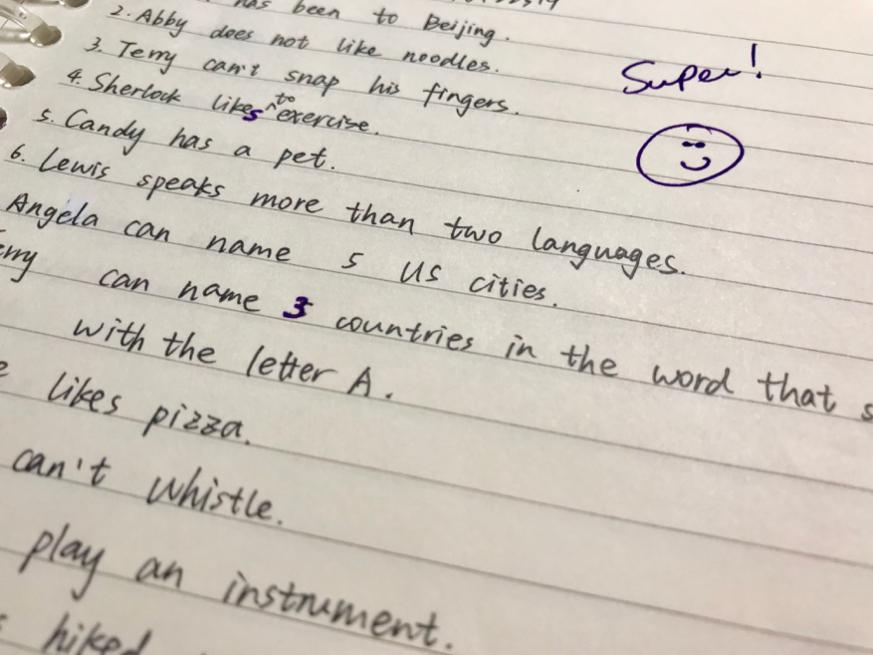 has been to Beijing.
2. Abby does not like noodles.
3. Terry can't snap his fingers.
Super!
4. Sherlock likes to exercise.
5. Candy has a pet.
6. Lewis speaks more than two languages.
Angela can name 5 US cities.
can name 3 countries in the word that
with the letter A.
likes pizza.
can't whistle.
play an instrument.
hiked